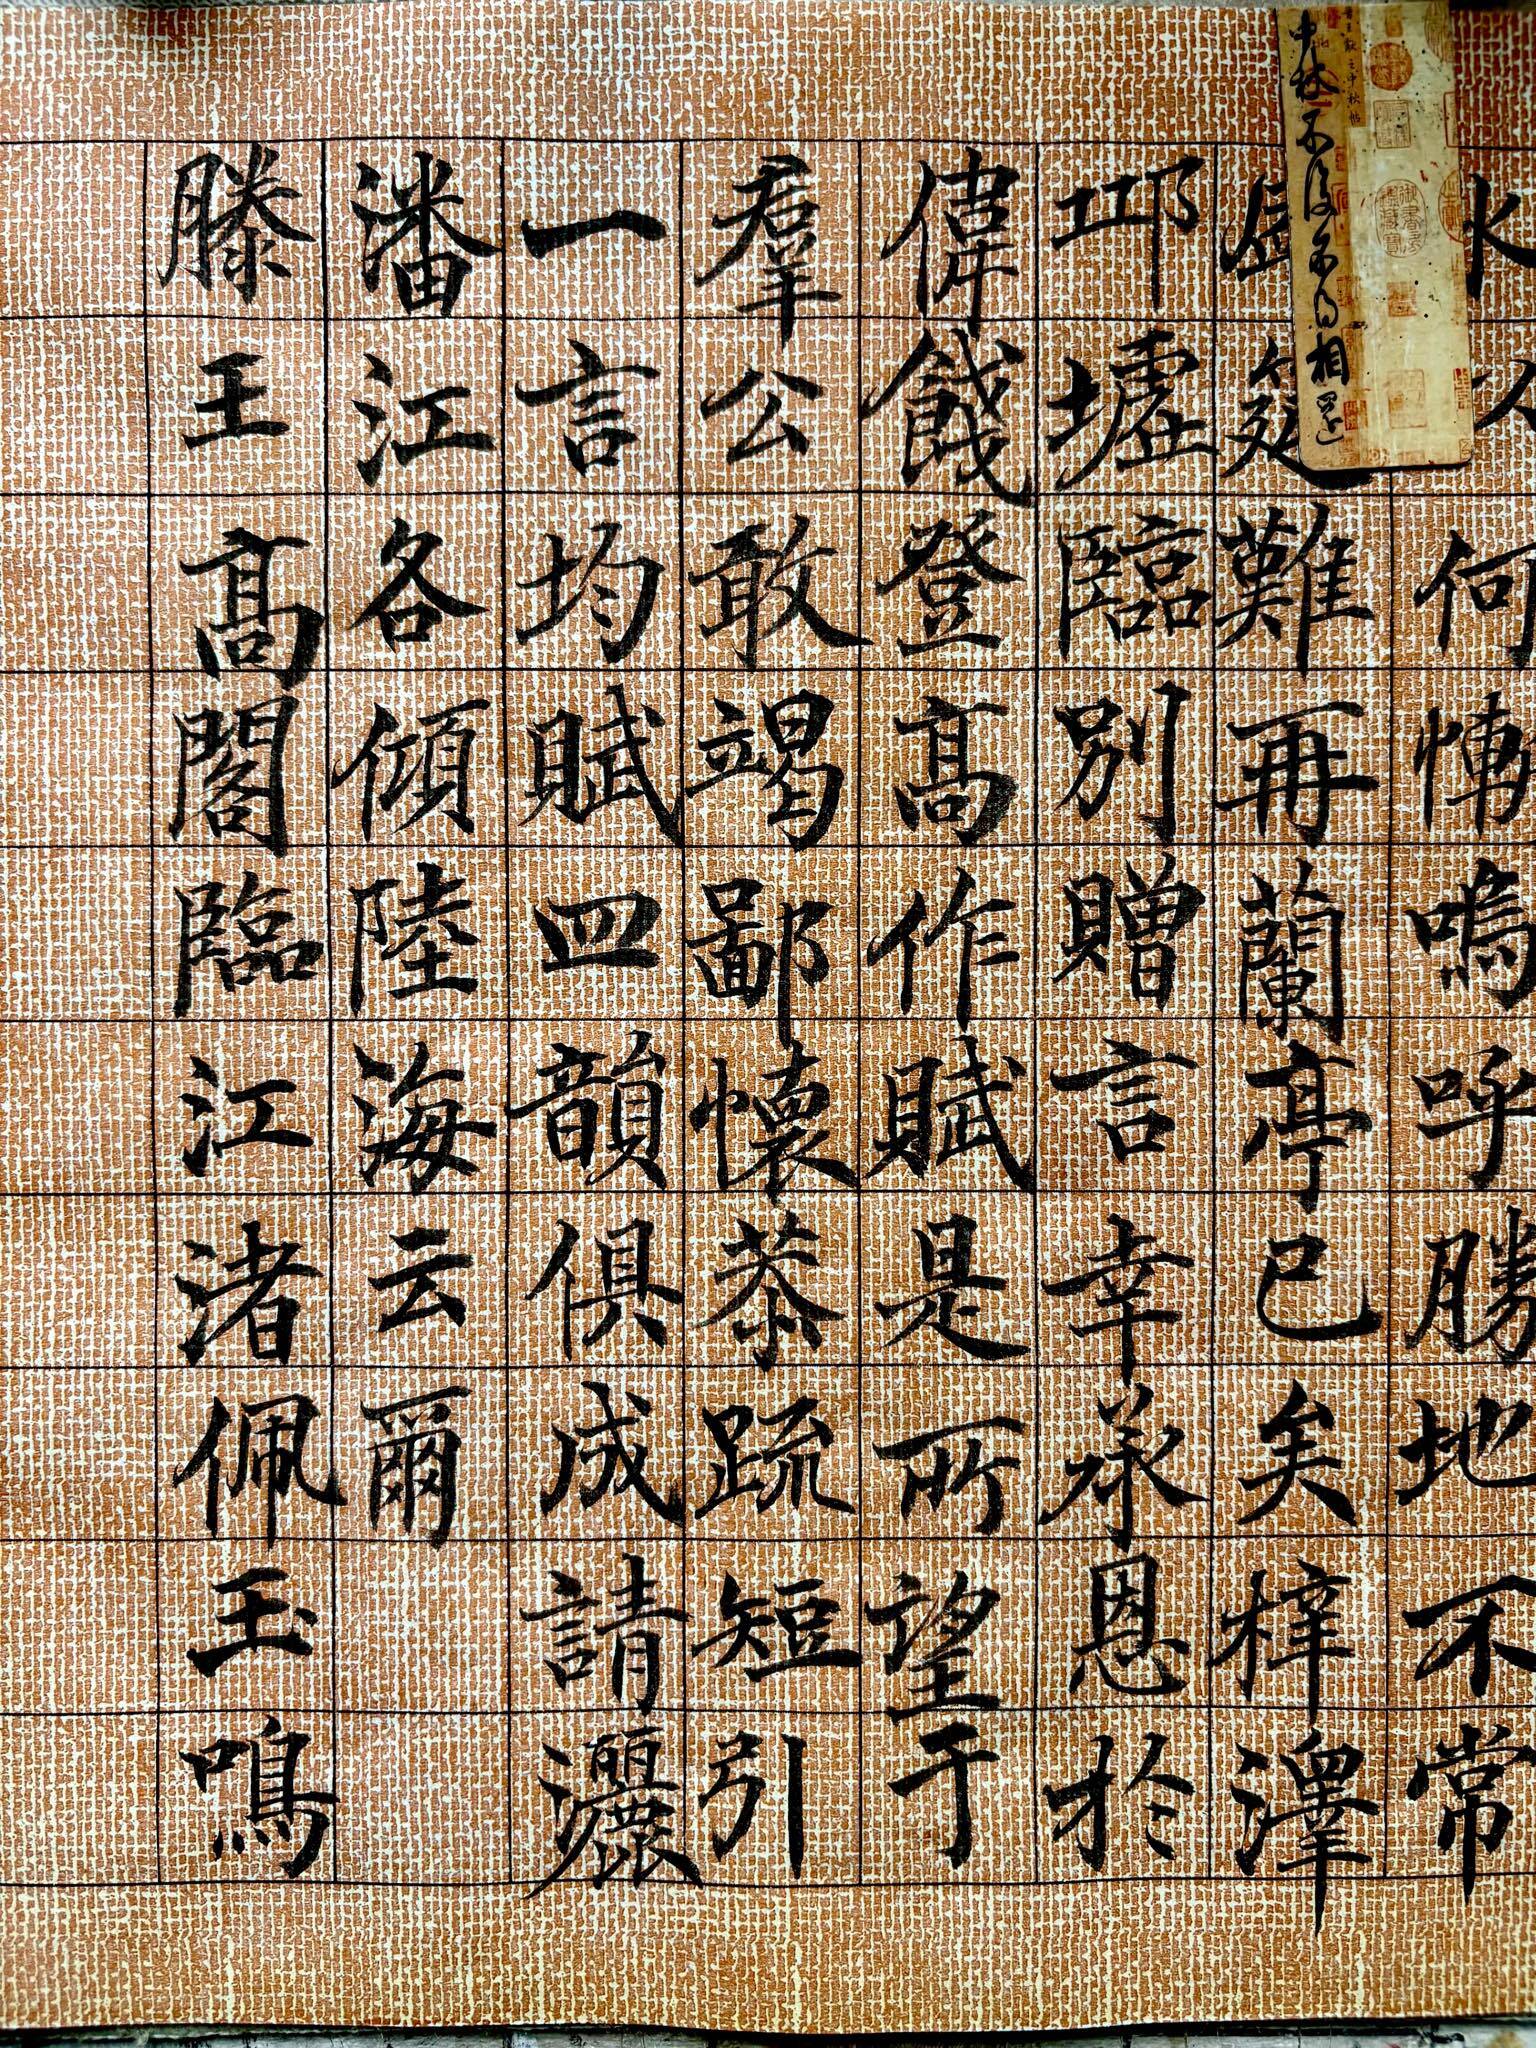 水以何慚嗚呼勝地不常
盛筵難再蘭亭已矣梓澤
邱墟臨別贈言幸承恩於
偉餞登高作賦是所望于
羣公敢竭鄙懷恭疏短引
一言均賦四韻俱成請灑
潘江各傾陸海云爾
滕王高閣臨江渚佩玉鳴
中秋不復不得相還